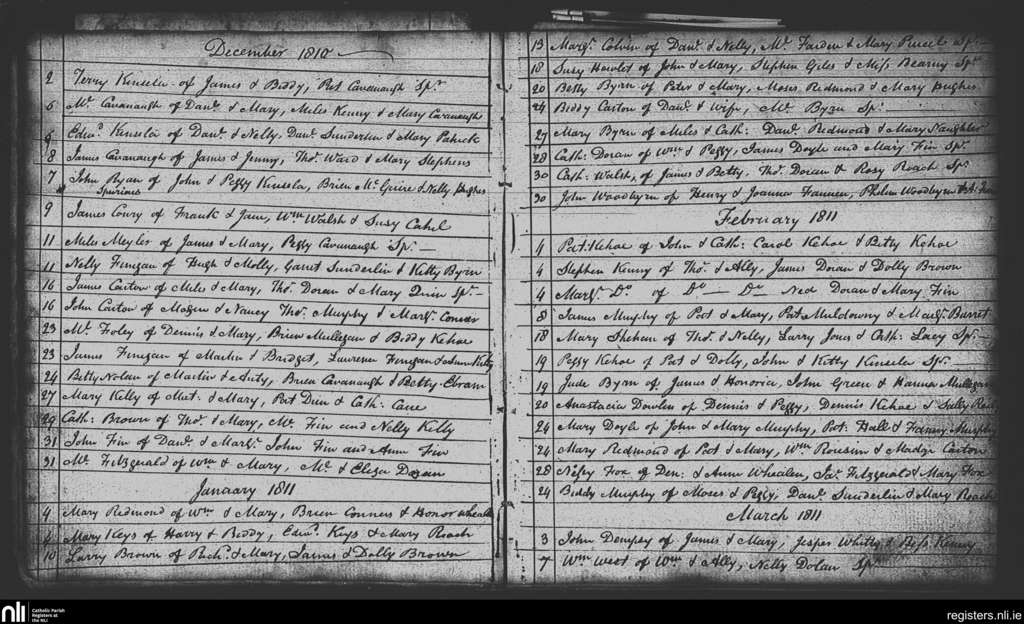 December 1810
2 Terry Kinsela of James & Biddy, Pat Cavanaugh Sp.r
5 Mr. Cavanaugh of Danl. & Mary, Miles Kenny & Mary Cavanaugh
5 Edwd. Kinsela of Danl. & Nelly Danl. Sunderlin & Mary Patrick
8 James Cavanaugh of James & Jenny, Thos. Ward & Mary Stephens
7 John Ryan of John & Peggy Kinsela, Brien Mc.Guire & Nelly Hughes
Spurious
9 James Coury of Frank & Jane, Wm Walsh & Susy Cahel
11 Miles Meyler of James & Mary, Peggy Cavanaugh Sp.r —
11 Nelly Finegan of Hugh & Molly, Garret Sunderlin & Kitty Byrn
16 James Carton of Miles & Mary, Thos. Doran & Mary Quin Sp.rs —
16 John Carton of & Nancy Thos. Murphy & Margt. Connor
23 Mr. Foley of Dennis & Mary, Brien Mullegan & Biddy Kehoe
23 James Finegan of Martin & Bridget, Laurence Finegan & Anne Kelly
24 Betty Nolan of Martin & Brien Cavanaugh & Betty
27 Mary Kelly of Mat: & Mary, Pat & Cath: Cane
29 Cath: Brown of Thos. & Mary, Mr. Fin and Nelly Kelly
31 John Fin of Danl. & Margt. John Fin and Ann Fin
31 Mr. Fitzgerald of Wm & Mary, Mr. & Eliza Dogan
January 1811
4 Mary Redmond of Wm & Mary, Brien Connors & Honor
4 Mary Keys of Harry & Biddy, Edwd. Keys & Mary Roach
10 Larry Brown of Richd. & Mary, James & Dolly Brown
13 Margt. Colvin of Danl. & Nelly, Mr. Farden & Mary Purcel Sp.rs
18 Susy Howlet of John & Mary, Stephen Giles & Miss Bearny Sp.rs
20 Betty Byrn of Peter & Mary, Moses Redmond & Mary Hughes
24 Biddy Carton of Danl. & Wife, Mr. Byrn Sp.r
27 Mary Byrn of Miles & Cath: Danl. Redmond & Mary Naughter
28 Cath: Doran of Wm & Peggy, James Doyle and Mary Fin Sp.rs
30 Cath: Walsh, of James & Betty, Thos. Doran & Rosy Roach Sp.rs
30 John Woodbyrn of Henry & Joanna Phelim Woodbyrn &
February 1811
4 Pat: Kehoe of John & Cath: Carol Kehoe & Betty Kehoe
4 Stephen Kenny of Thos. & Ally, James Doran & Dolly Brown
4 Margt. Do. of Do — Do Ned Doran & Mary Fin
8 James Murphy of Pat & Mary, Pat Muldowny & Margt. Barret
18 Mary Shehan of Thos. & Nelly, Larry Jones & Cath: Lacy Sp.rs —
19 Peggy Kehoe of Pat & Dolly, John & Kitty Kinsela Sp.rs
19 Jude Byrn of James & Honoria, John Green & Hanna Mullegan
20 Anastacia Dowlin of Dennis & Peggy, Dennis Kehoe & Sally
24 Mary Doyle of John & Mary Murphy, Pat: Hall & Fanny Murphy
24 Mary Redmond of Pat & Mary, Wm Rousem & Madge Carton
28 Nelly Fox of Den: & Ann Whealen, Jas. Fitzgerald & Mary Fox
24 Biddy Murphy of Moses & Peggy, Danl. Sunderlin & Mary Roach
March 1811
3 John Dempsy of James & Mary, Jesper Whitty & Bess Kenny
7 Wm West of Wm & Ally, Nelly Dolan Sp.r
nli Catholic Parish
Registers at
the NLI
registers.nli.ie